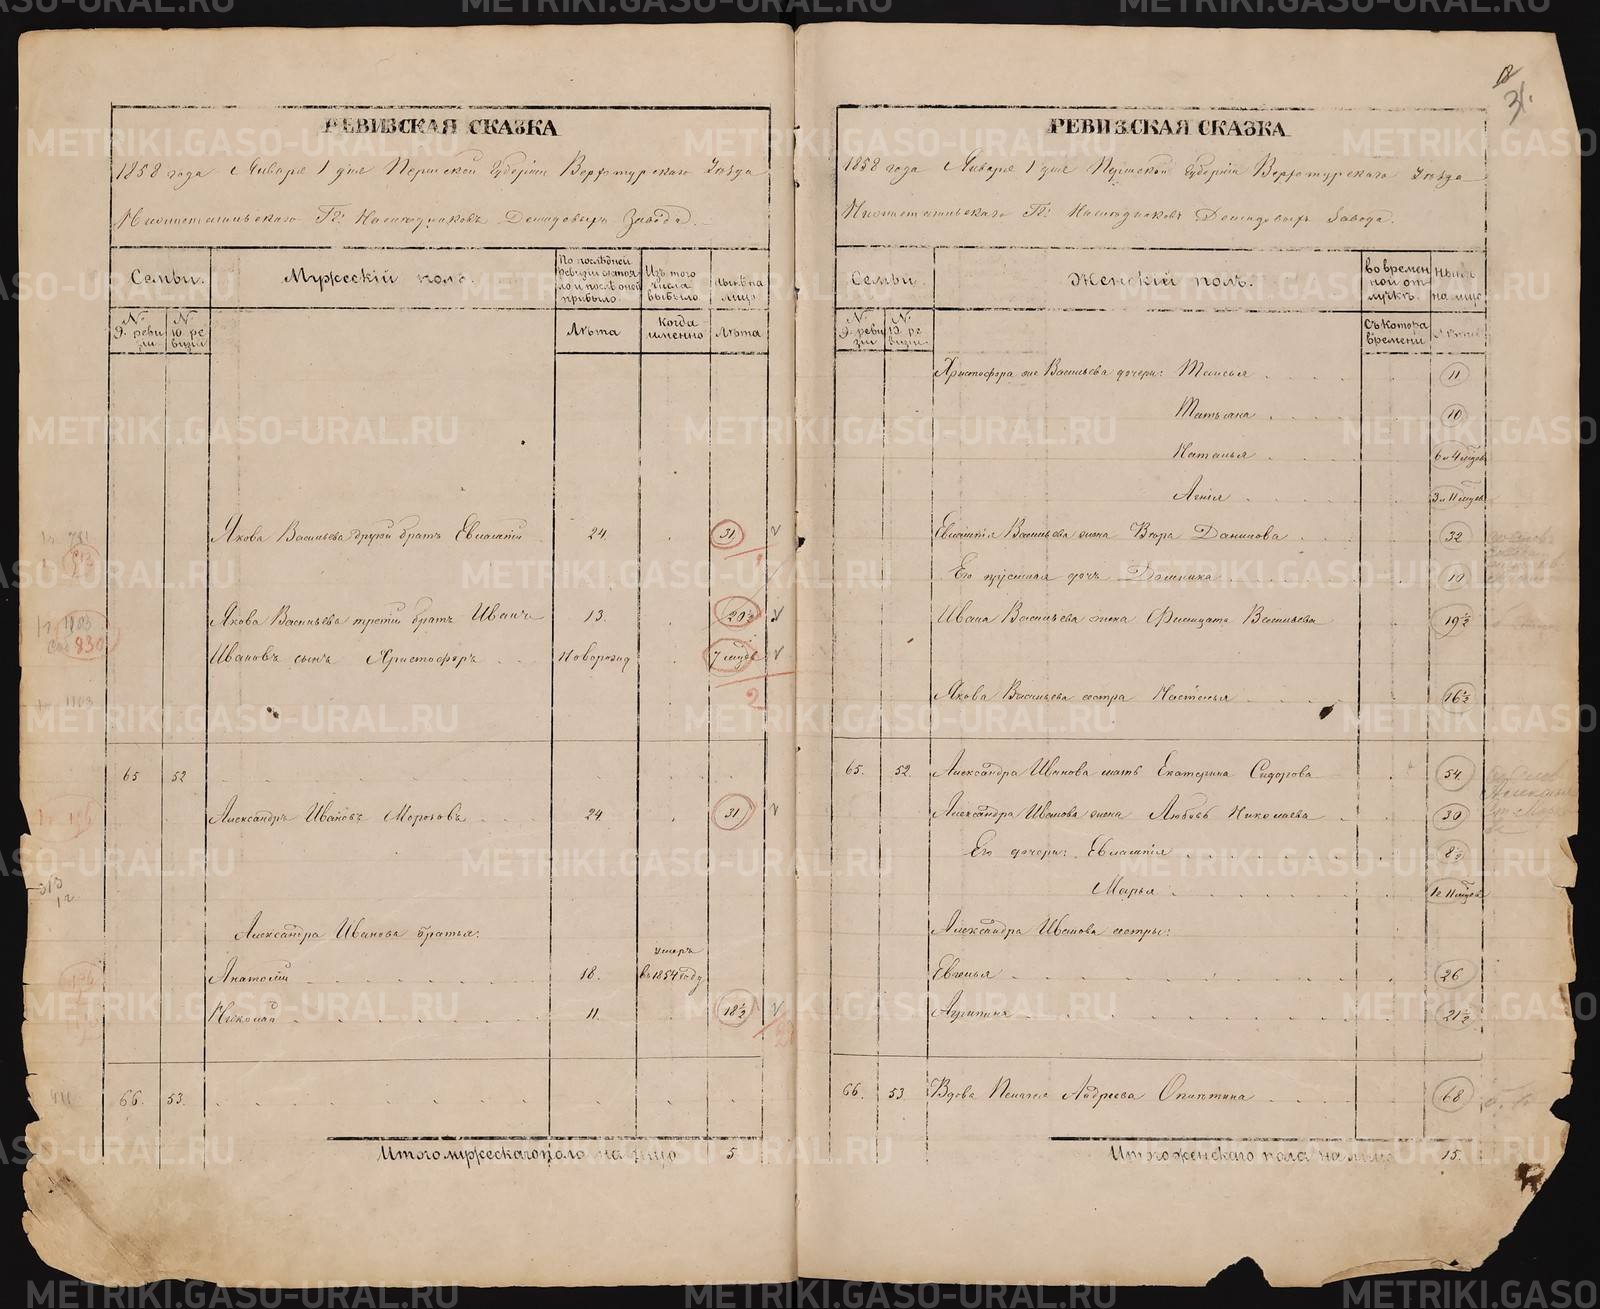 РЕВИЗСКАЯ СКАЗКА
1858 года Января 1 дня Пермской Губерніи Верхотурскаго Уѣзда
Нижнетагильскаго Гг: Наслѣдниковъ Демидовыхъ Завода.
Семьи. Мужескій полъ. По послѣдней ревизіи состояло и послѣ оной прибыло. Изъ того числа выбыло. Нынѣ на лицо
№ 9. ревизіи № 10. ревизіи Лѣта Когда именно Лѣта
Якова Васильева другій братъ Евлампій 24. 31
Якова Васильева третій братъ Иванъ 13. 20½
Ивановъ сынъ Христофоръ Новорожд 7 мцов
65 52
Александръ Ивановъ Морозовъ 24. 31
Александра Иванова братья:
Анатолій 18. умеръ въ 1854 году
Николай 11. 18½
66. 53.
Итого мужескаго пола на лицо 5
31.
РЕВИЗСКАЯ СКАЗКА
1858 года Января 1 дня Пермской Губерніи Верхотурскаго Уѣзда
Нижнетагильскаго Гг: Наслѣдниковъ Демидовыхъ Завода.
Семьи. Женскій полъ. Во временной отлучкѣ. Нынѣ на лицо
№ 9. ревизіи № 10. ревизіи Съ котора времени Лѣта
Христофора же Васильева дочери: Таисья 11
Татьяна 10
Наталья 6 и 4 мцов
Агнія 3 и 11 мцов
Евлампія Васильева жена Вѣра Данилова 32
Его дочь Домника 10
Ивана Васильева жена Фелицата Васильева 19½
Якова Васильева сестра Настасья 16½
65. 52. Александра Иванова мать Екатерина Сидорова 54.
Александра Иванова жена Любовь Николаева 30
Его дочери: Евлампія 8½
Марья 1 и 11 мцов
Александра Иванова сестры:
Евгенья 26
Агрипина 21½
66. 53 Вдова Пелагея Андреева 68
Итого женскаго пола на лицо 15.
METRIKI.GASO-URAL.RU